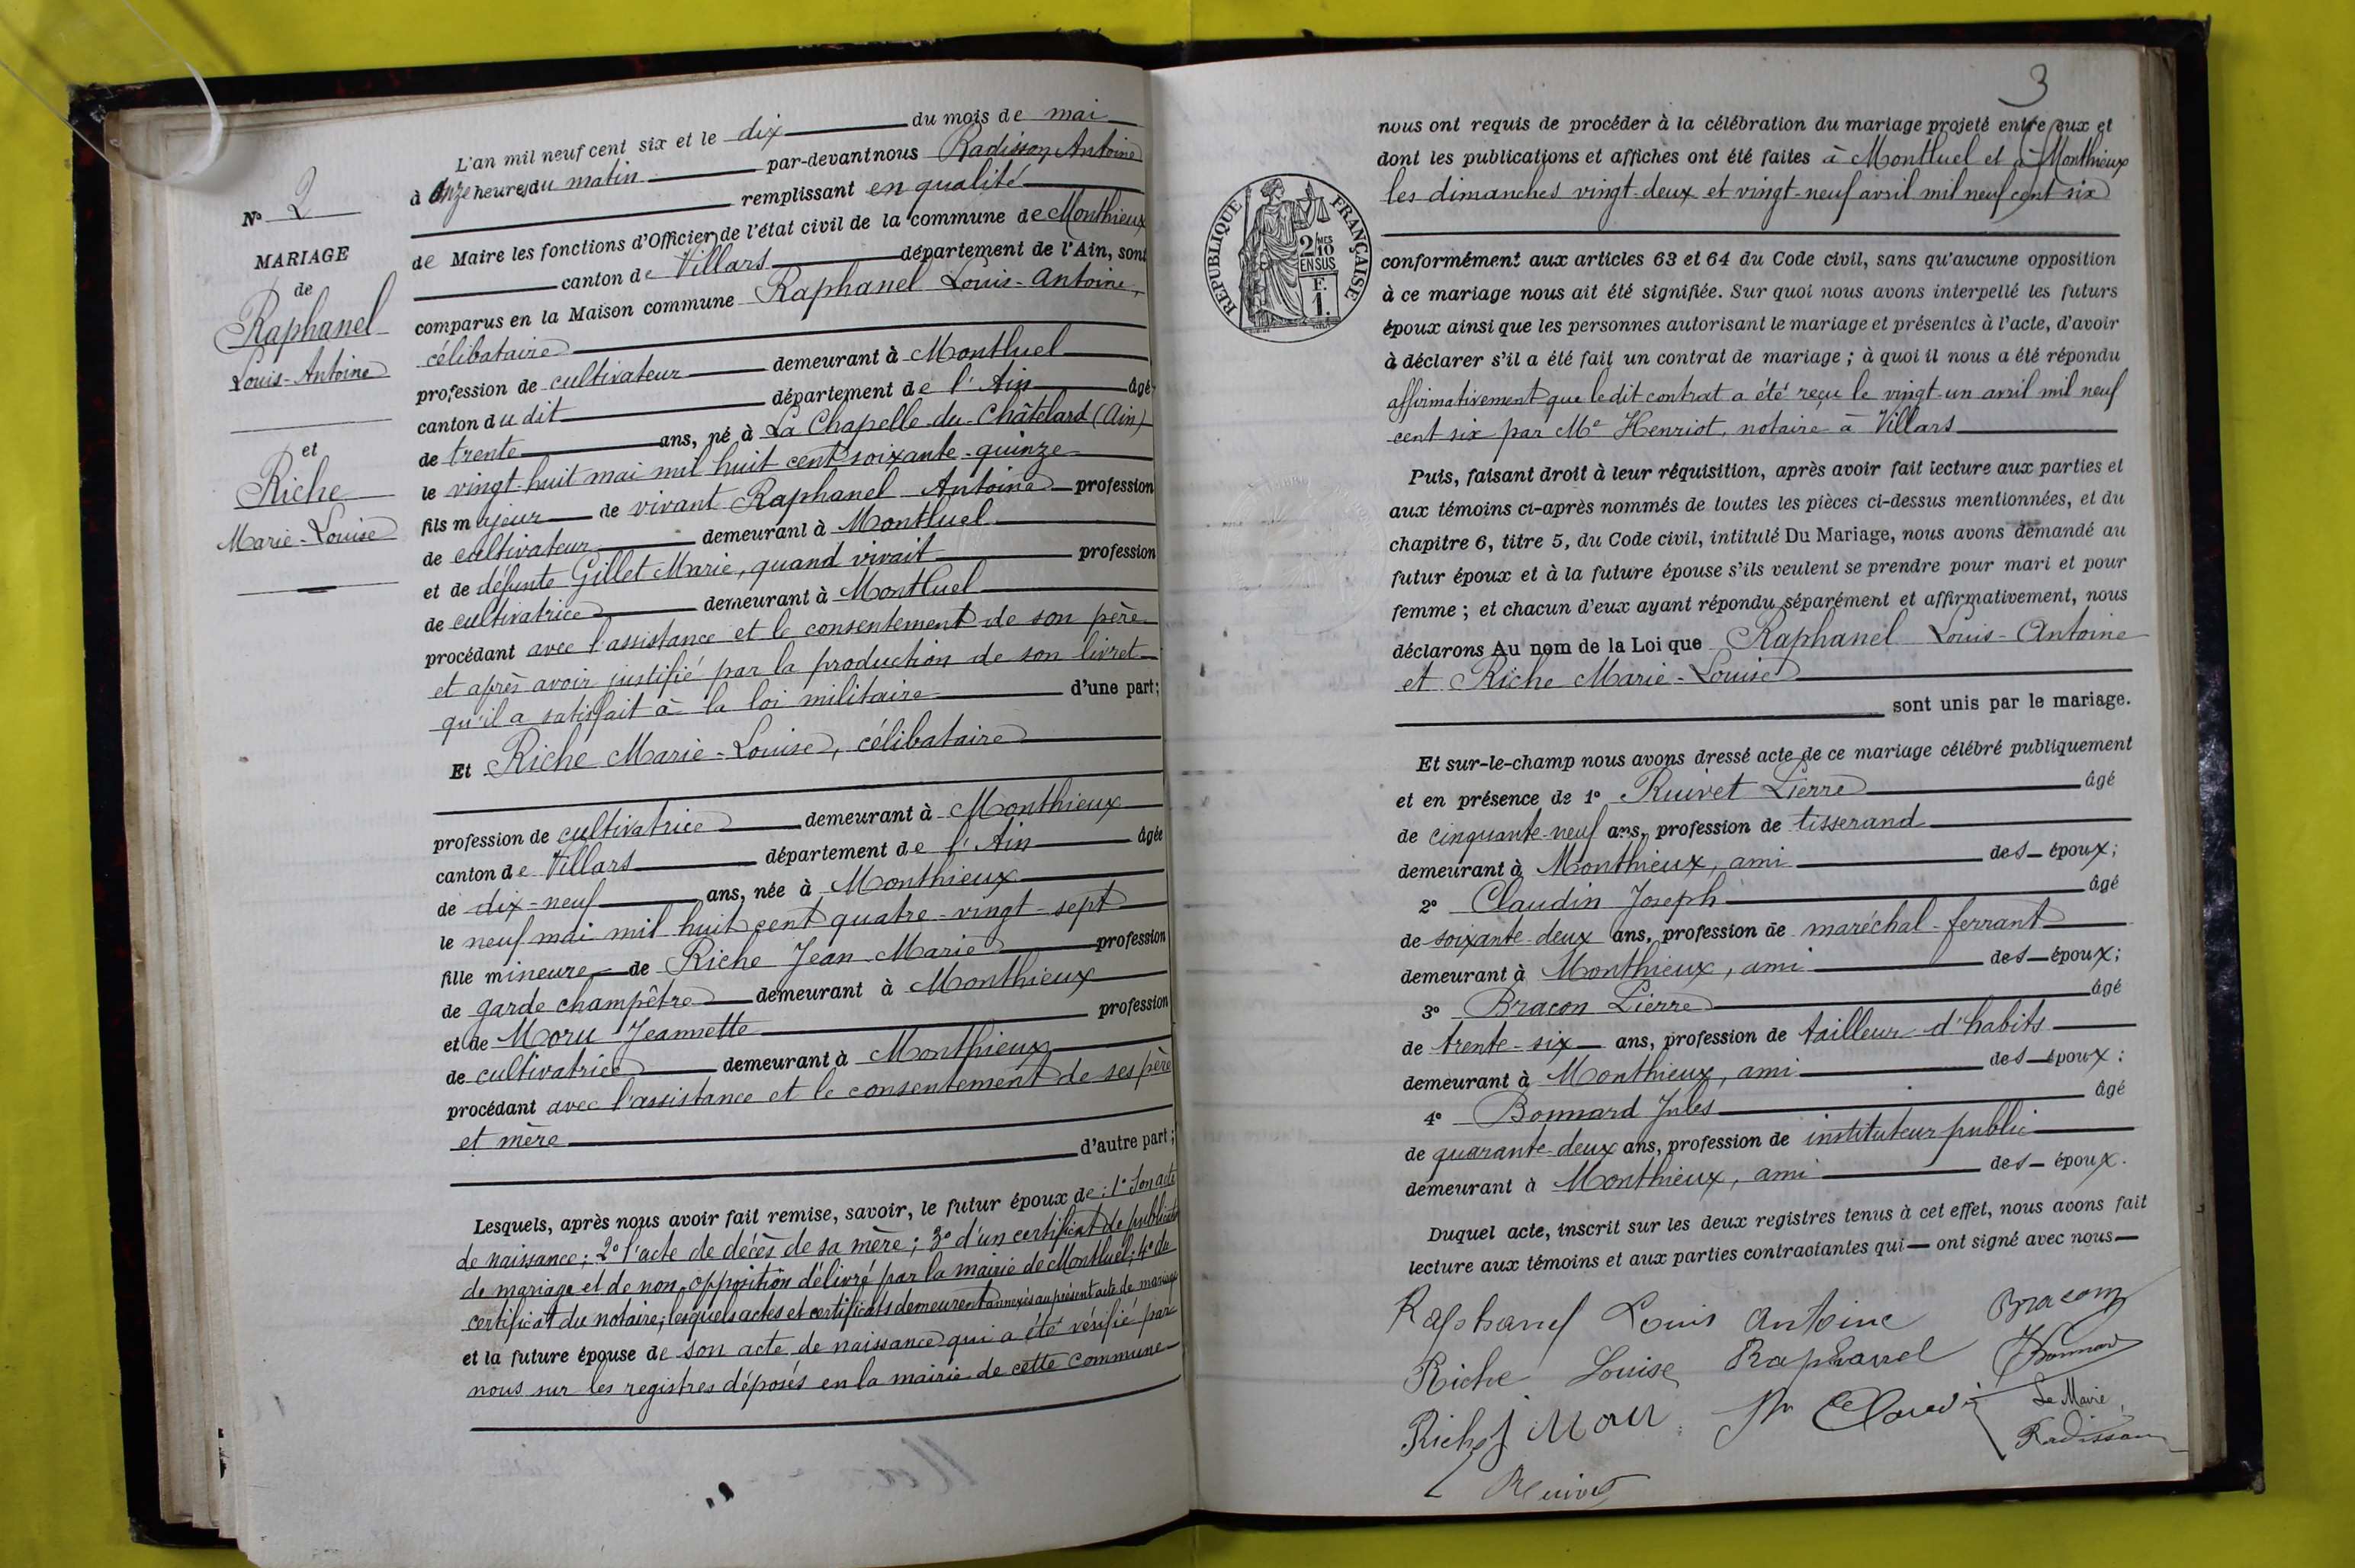 N° 2
MARIAGE
de
Raphanel
Louis-Antoine
et
Riche
Marie-Louise
L'an mil neuf cent six et le dix du mois de mai
à onze heures du matin par-devant nous Radisson Antoine
remplissant en qualité
de Maire les fonctions d'Officier de l'état civil de la commune de Monthieux
canton de Villars département de l'Ain, sont
comparus en la Maison commune Raphanel Louis-Antoine,
célibataire
profession de cultivateur demeurant à Montluel
canton du dit département de l'Ain âgé
de trente ans, né à La Chapelle-du-Châtelard (Ain)
le vingt-huit mai mil huit cent soixante-quinze
fils majeur de vivant Raphanel Antoine profession
de cultivateur demeurant à Montluel
et de défunte Gillet Marie, quand vivait profession
de cultivatrice demeurant à Montluel
procédant avec l'assistance et le consentement de son père
et après avoir justifié par la production de son livret
qu'il a satisfait à la loi militaire d'une part;
Et Riche Marie-Louise, célibataire
profession de cultivatrice demeurant à Monthieux
canton de Villars département de l'Ain âgée
de dix-neuf ans, née à Monthieux
le neuf mai mil huit cent quatre-vingt-sept
fille mineure de Riche Jean-Marie profession
de garde champêtre demeurant à Monthieux
et de Moru Jeannette profession
de cultivatrice demeurant à Monthieux
procédant avec l'assistance et le consentement de ses père
et mère
d'autre part;
Lesquels, après nous avoir fait remise, savoir, le futur époux de: 1° Son acte
de naissance; 2° l'acte de décès de sa mère; 3° d'un certificat de publication
de mariage et de non opposition délivré par la mairie de Montluel; 4° de
certificat du notaire; lesquels actes et certificats demeurent annexés au présent acte de mariage
et la future épouse de son acte de naissance qui a été vérifié par
nous sur les registres déposés en la mairie de cette commune
3
nous ont requis de procéder à la célébration du mariage projeté entre eux et
dont les publications et affiches ont été faites à Montluel et à Monthieux
les dimanches vingt-deux et vingt-neuf avril mil neuf cent six
REPUBLIQUE FRANÇAISE
2/10 MES
EN SUS
F.
1.
conformément aux articles 63 et 64 du Code civil, sans qu'aucune opposition
à ce mariage nous ait été signifiée. Sur quoi nous avons interpellé les futurs
époux ainsi que les personnes autorisant le mariage et présentes à l'acte, d'avoir
à déclarer s'il a été fait un contrat de mariage; à quoi il nous a été répondu
affirmativement que le dit contrat a été reçu le vingt-un avril mil neuf
cent six par Me Henriot, notaire à Villars
Puis, faisant droit à leur réquisition, après avoir fait lecture aux parties et
aux témoins ci-après nommés de toutes les pièces ci-dessus mentionnées, et du
chapitre 6, titre 5, du Code civil, intitulé Du Mariage, nous avons demandé au
futur époux et à la future épouse s'ils veulent se prendre pour mari et pour
femme; et chacun d'eux ayant répondu séparément et affirmativement, nous
déclarons Au nom de la Loi que Raphanel Louis-Antoine
et Riche Marie-Louise
sont unis par le mariage.
Et sur-le-champ nous avons dressé acte de ce mariage célébré publiquement
et en présence de 1° Ruivet Pierre âgé
de cinquante-neuf ans, profession de tisserand
demeurant à Monthieux, ami des époux;
2° Claudin Joseph âgé
de soixante-deux ans, profession de maréchal-ferrant
demeurant à Monthieux, ami des époux;
3° Bracon Pierre âgé
de trente-six ans, profession de tailleur d'habits
demeurant à Monthieux, ami des époux;
4° Bonnard Jules âgé
de quarante-deux ans, profession de instituteur public
demeurant à Monthieux, ami des époux.
Duquel acte, inscrit sur les deux registres tenus à cet effet, nous avons fait
lecture aux témoins et aux parties contractantes qui ont signé avec nous
Raphanel Louis Antoine Bracon
Riche Louise Raphanel JBonnard
Riche J Moru Claudin Le Maire,
Radisson
Ruivet